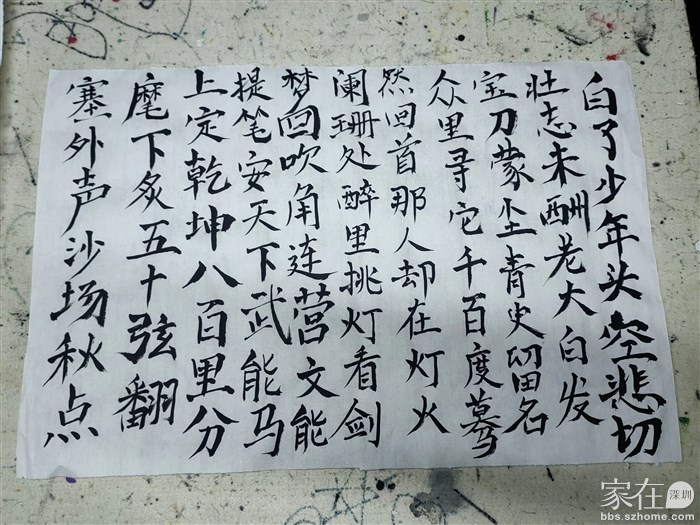 白了少年头空悲切
壮志未酬老大白发
宝刀蒙尘青史留名
众里寻它千百度蓦
然回首那人却在灯火
阑珊处醉里挑灯看剑
梦回吹角连营文能
提笔安天下武能马
上定乾坤八百里分
麾下炙五十弦翻
塞外声沙场秋点
家在深圳
bbs.szhome.com